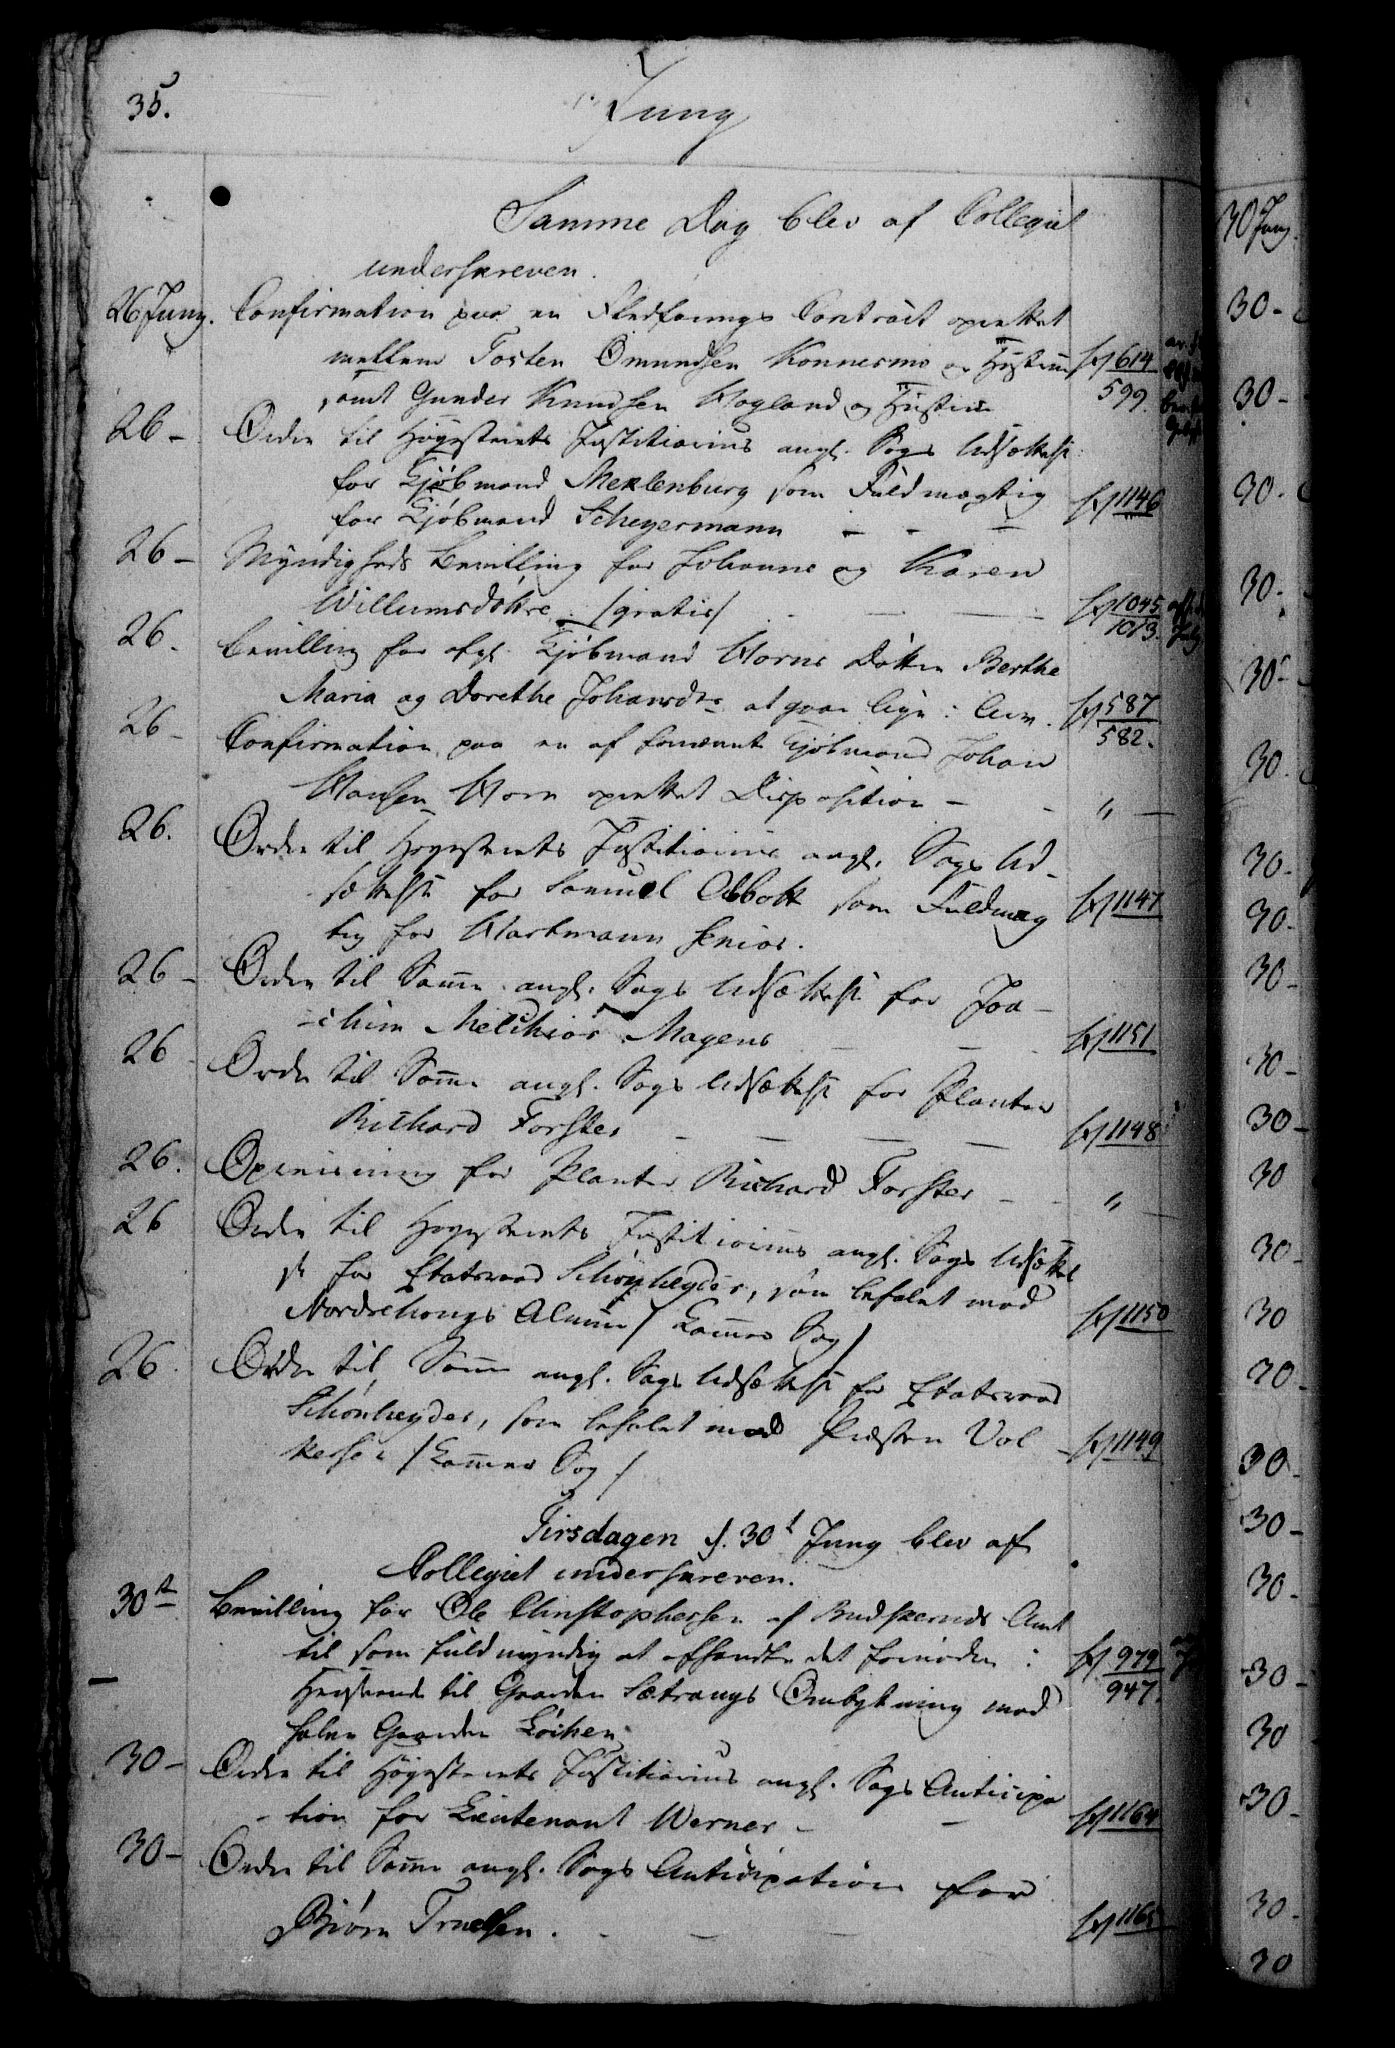 35. Juny
Samme Dag blev af Collegiet
underskreven.
26 Juny. Confirmation paa en Fledførings Contract oprettet
mellem Tosten Omundsen Konnesmo og Hustrue 614
samt Gunder Knudsen Hogland og Hustrue 599.
26 - Ordre til Høyesterets Justitiarius angl. Sags Udsættelse
for Kjøbmand Meklenburg som Fuldmægtig
for Kjøbmand Scheyermann - - - 1146
26 - Myndigheds Bevilling for Johanne og Karen
Willumsdøttre /gratis/ - - - 1045
1013.
26. Bevilling for afg. Kjøbmand Horns Døttre Berthe
Maria og Dorethe Johansdr at gaae lige i Arv. 587
582.
26 - Confirmation paa en af bemeldte Kjøbmand Johan
Hansen Horn oprettet Disposition - - „ -
26. Ordre til Høyesterets Justitiarius angl. Sags Ud-
sættelse for Samuel Abbott som Fuldmæg 1147
tig for Hartmann senior.
26 - Ordre til Samme angl. Sags Udsættelse for Joa-
-chim Melchior Magens - - 1151
26 - Ordre til Samme angl. Sags Udsættelse for Planter
Richard Forster - - - - 1148
26. Opreisning for Planter Richard Forster - - „ -
26 Ordre til Høyesterets Justitiarius angl. Sags Udsættel
se for Etatsraad Schönheyder, som befalet mod
Nordrehougs Almue /Kammer Sag/ 1150
26. Ordre til Samme angl. Sags Udsættelse for Etatsraad
Schönheyder, som befalet mod Præsten Vol 1149
kersen /Kammer Sag/
Tirsdagen d. 30t Juny blev af
Collegiet underskreven.
30te Bevilling for Ole Christophersen af Budskeruds Amt
til som fuldmyndig at afhandle det fornødne i 979
Henseende til Gaarden Sætrangs Ombytning mod 947.
halve Gaarden Löchen
30 - Ordre til Høyesterets Justitiarius angl. Sags Anticipa
-tion for Lieutenant Werner - - 1164
30 - Ordre til Samme angl. Sags Anticipation for
Biørn Truelsen. - - - 1165
30 Juny.
30 -
30 -
30 -
30 -
30 -
30 -
30 -
30 -
30 -
30 -
30 -
30
30 -
30
30 -
30 -
30 -
30 -
30 -
30
30 -
30 -
30